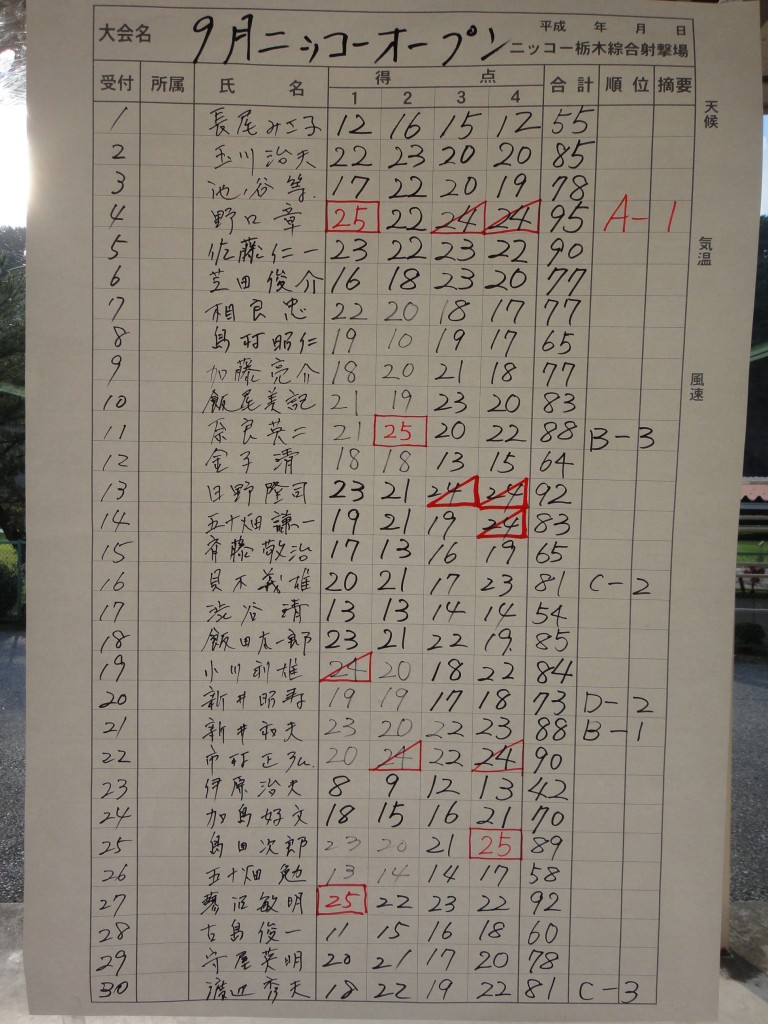 大会名 9月ニッコーオープン 平成 年 月 日
ニッコー栃木綜合射撃場
受付 所属 氏名 得点 合計 順位 摘要
1 2 3 4
天候
気温
風速
1 長尾みさ子 12 16 15 12 55
2 玉川治夫 22 23 20 20 85
3 池ノ谷等 17 22 20 19 78
4 野口章 25 22 24 24 95 A-1
5 佐藤仁一 23 22 23 22 90
6 芝田俊介 16 18 23 20 77
7 相良忠 22 20 18 17 77
8 島村昭仁 19 10 19 17 65
9 加藤亮介 18 20 21 18 77
10 飯尾美記 21 19 23 20 83
11 奈良英二 21 25 20 22 88 B-3
12 金子清 18 18 13 15 64
13 日野隆司 23 21 24 24 92
14 五十畑謙一 19 21 19 24 83
15 斉藤敬治 17 13 16 19 65
16 貝木義雄 20 21 17 23 81 C-2
17 渋谷靖 13 13 14 14 54
18 飯田友一郎 23 21 22 19 85
19 小川利雄 24 20 18 22 84
20 新井昭寿 19 19 17 18 73 D-2
21 新井和夫 23 20 22 23 88 B-1
22 市村正弘 20 24 22 24 90
23 伊原治夫 8 9 12 13 42
24 加島好文 18 15 16 21 70
25 島田次郎 23 20 21 25 89
26 五十畑勉 13 14 14 17 58
27 蓼沼敏明 25 22 23 22 92
28 古島俊一 11 15 16 18 60
29 守屋英明 20 21 17 20 78
30 渡辺秀夫 18 22 19 22 81 C-3